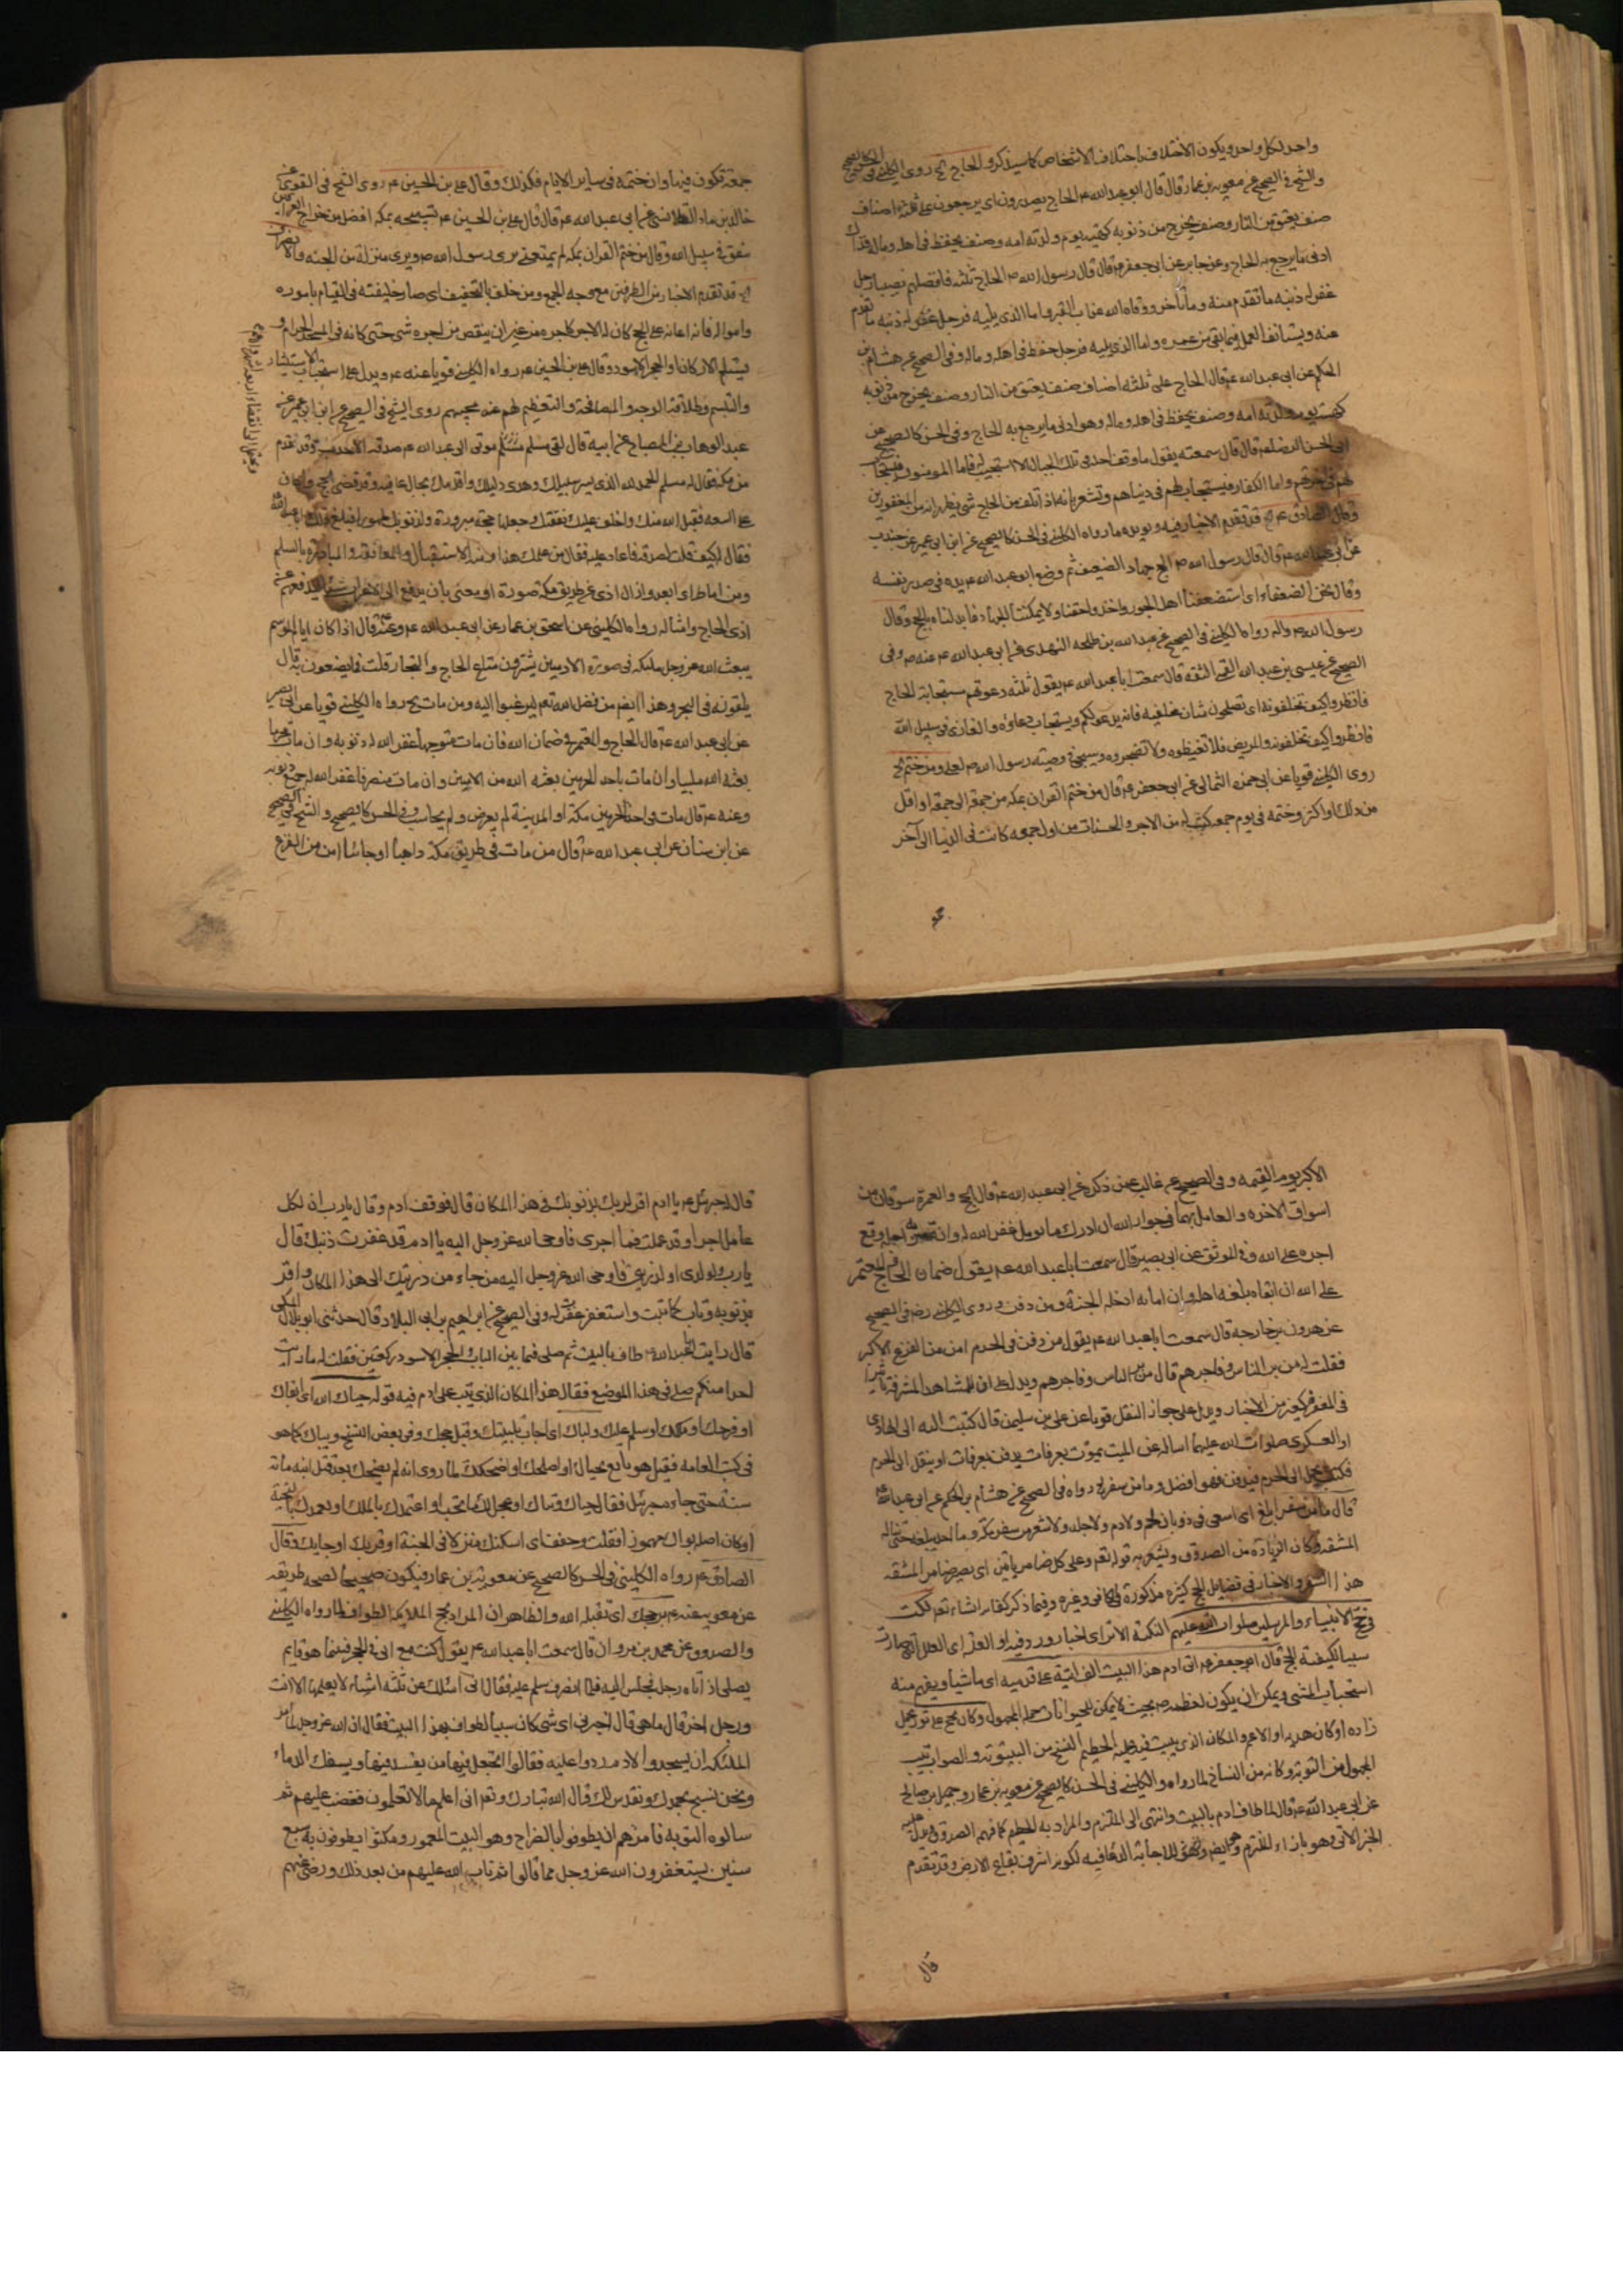 واحد لكل واحد ويكون الاختلاف باختلاف الاشخاص كما سيذكر والحاج الخ روى الكليني في الحسن كالصحيح
والشيخ في الصحيح عن معوية بن عمار قال قال ابو عبد الله ع الحاج يصدرون اى يرجعون على ثلثة اصناف
صنف يعتق من النار وصنف يخرج من ذنوبه كهيئة يوم ولدته امه وصنف يحفظ في اهله وماله فذاك
ادنى ما يرجع به الحاج وعن جابر عن ابى جعفر ع قال قال رسول الله ص الحاج ثلثة فافضلهم نصيبا رجل
غفر له ذنبه ما تقدم منه وما تأخر ووقاه الله عذاب القبر واما الذى يليه فرجل غفر له ذنبه ما تقدم
عنه ويستانف العمل فيما بقى من عمره واما الذى يليه فرجل حفظ في اهله وماله وفى الصحيح عن هشام بن
الحكم عن ابى عبد الله ع قال الحاج على ثلثة اصناف صنف يعتق من النار وصنف يخرج من ذنوبه
كهيئة يوم ولدته امه وصنف يحفظ في اهله وماله وهو ادنى ما يرجع به الحاج وفى الحسن كالصحيح عن
ابى الحسن الرضا ع قال قال سمعته يقول ما وقف احد في تلك الجبال الا استجيب له فاما المومنون فيستجاب
لهم في اخرتهم واما الكفار فيستجاب لهم في دنياهم
وقال الصادق ع الخ قد تقدم الاخبار فيه ويويده ما رواه الكليني في الحسن كالصحيح عن ابن ابى عمير عن جندب
عن ابى عبد الله ع قال قال رسول الله ص الحج جهاد الضعيف ثم وضع ابو عبد الله ع يده في صدر نفسه
وقال نحن الضعفاء اى استضعفنا اهل الجور واخذوا حقنا ولا يمكننا الجهاد فابدلناه بالحج وقال
رسول الله ص واله رواه الكليني في الصحيح عن عبد الله بن طلحه النهدى عن ابى عبد الله ع عنه ص وفى
الصحيح عن عيسى بن عبد الله القمى الثقة قال سمعت ابا عبد الله ع يقول ثلثه دعوتهم مستجابة الحاج
فانظروا كيف تخلفونه اى تصلحون شان مخلفيه فانه يدعو لكم ويستجاب دعاؤه والغازى في سبيل الله
فانظروا كيف تخلفونه والمريض فلا تغيظوه ولا تضجروه وسيجئ وصيته رسول الله ص لعلى ومن ختم الخ
روى الكليني قويا عن ابى حمزه الثمالى عن ابى جعفر ع قال من ختم القران بمكه من جمعة الى جمعة او اقل
من ذلك او اكثر وختمه في يوم جمعة كتب له من الاجر والحسنات من اول جمعه كانت في الدنيا الى آخر
جمعة تكون فيها وان ختمه في ساير الايام فكذلك وقال على بن الحسين ع روى الشيخ في القوى عن
خالد بن ماد القلانسى عن ابى عبد الله ع قال قال على بن الحسين ع تسبيحه بمكه افضل من خراج العراقين
ينفق في سبيل الله وقال من ختم القران بمكه لم يمت حتى يرى رسول الله ص ويرى منزله من الجنه
الخ قد تقدم الاخبار من الطرفين مع وجه الجمع ومن خلف بالتخفيف اى صار خليفته في القيام باموره
وامواله فانه اعانه على الحج كان له الاجر كاجره من غير ان ينقص من اجره شئ حتى كانه في المسجد الحرام و
يستلم الاركان والحجر الاسود وقال على بن الحسين ع رواه الكليني قويا عنه ع ويدل على استحباب الاستبشار
والتبسم وطلاقة الوجه والمصافحة والتعظيم لهم عند مجيهم روى الشيخ في الصحيح عن ابن ابى عمير عن
عبد الوهاب بن الصباح عن ابيه قال لقى مسلم مولى ابى عبد الله ع صدقه الاحدب وقد قدم
من مكه فقال له مسلم الحمد لله الذى يسر سبيلك وهدى دليلك واقدمك بحال عافيه وقد قضى الحج واعان
على السعه فقبل الله منك واخلف عليك نفقتك وجعلها حجة مبرورة ولذنوبك طهورا فبلغ ذلك ابا عبد الله
فقال له كيف قلت لصدقه فاعاد عليه فقال من علمك هذا
ومن اماط اى ابعد وازال اذى عن طريق مكه صورة او معنى بان يدفع الى الاعراب شيئا ليدفع عنهم
اذى الحاج وامثاله رواه الكليني عن اسحق بن عمار عن ابى عبد الله ع وعنه قال اذا كان ايام الموسم
يبعث الله عز وجل ملئكه في صورة الادميين يشترون متاع الحاج والتجار قلت فما يصنعون به قال
يلقونه في البحر وهذا ايضا من فضل الله تعم ليرغبوا اليه ومن مات الخ رواه الكليني قويا عن ابى بصير
عن ابى عبد الله ع قال الحاج والمعتمر في ضمان الله فان مات متوجها غفر الله له ذنوبه وان مات محرما
بعثه الله ملبيا وان مات باحد الحرمين بعثه الله من الامنين وان مات منصرفا غفر الله له جميع ذنوبه
وعنه ع قال من مات في احد الحرمين مكة او المدينة لم يعرض ولم يحاسب وفى الحسن كالصحيح والشيخ في الصحيح
عن ابن سنان عن ابى عبد الله ع قال من مات في طريق مكه ذاهبا او جائيا امن من الفزع
الاكبر يوم القيمه وفى الصحيح عن غالب عمن ذكره عن ابى عبد الله ع قال الحج والعمرة سوقان من
اسواق الاخره والعامل بهما في جوار الله ان ادرك ما يومل غفر الله له وان قصر به اجله وقع
اجره على الله وفى الموثق عن ابى بصير قال سمعت ابا عبد الله ع يقول ضمان الحاج والمعتمر
على الله ان ابقاه بلغه اهله وان اماته ادخله الجنة ومن دفن روى الكليني رضه في الصحيح
عن هرون بن خارجة قال سمعت ابا عبد الله ع يقول من دفن في الحرم امن من الفزع الاكبر
فقلت له من بر الناس وفاجرهم قال من بر الناس وفاجرهم ويدل على ان للمشاهد المشرفة تاثيرا
في المغفرة كغيره من الاخبار ويدل على جواز النقل قويا عن على بن سليمن قال كتبت اليه الى الهادى
او العسكرى صلوات الله عليهما اساله عن الميت يموت بعرفات يدفن بعرفات او ينقل الى الحرم
فكتب يحمل الى الحرم فيدفن فهو افضل وما من سفر الخ رواه في الصحيح عن هشام بن الحكم عن ابى عبد الله
قال ما من سفر ابلغ اى اسعى في ذوبان لحم ولا دم ولا جلد ولا شعر من سفر مكه وما احد يبلغه حتى تناله
المشقه وكان الزيادة من الصدوق ويشعر به قوله تعم وعلى كل ضامر ياتين اى يصير ضامرا من المشقه
هذا السفر والاخبار في فضايل الحج كثيرة مذكورة في الكافى وغيره وفيما ذكر كفايه انشاء تعم نكت
في حج الانبياء والمرسلين صلوات الله عليهم النكتة الاثر اى اخبار ورد فيه او العلة اى العلل التى صارت
سببا لكيفية الحج قال ابو جعفر ع اتى ادم هذا البيت الف اتية على قدميه اى ماشيا ويفهم منه
استحباب المشى ويمكن ان يكون لعظمه ع بحيث لا يمكن للحيوانات حمله المحمول وكان يحج على ثور يحمل
زاده او كان هديه او الاعم والمكان الذى يبيت فيه ع الحطيم النسخ من البيتوتة والصواب تيب
المجهول من التوبة وكانه من النساخ لما رواه والكليني في الحسن كالصحيح عن معوية بن عمار وجميل بن صالح
عن ابى عبد الله ع قال لما طاف ادم بالبيت وانتهى الى الملتزم والمراد به الحطيم كما فهمه الصدوق
الخبر الاتى وهو بازاء الملتزم لاجابة الدعا فيه لكونه اشرف بقاع الارض وقد تقدم
قال له جبرئيل ع يا ادم اقر لربك بذنوبك في هذا المكان قال فوقف ادم وقال يا رب ان لكل
عامل اجرا وقد عملت فما اجرى فاوحى الله عز وجل اليه يا ادم قد غفرت ذنبك قال
يا رب ولولدى او لذريتى فاوحى الله عز وجل اليه من جاء من ذريتك الى هذا المكان واقر
بذنوبه وتاب كما تبت واستغفر غفرت له وفى الصحيح عن ابراهيم بن ابى البلاد قال حدثنى ابو بلال المكى
قال رايت ابا عبد الله ع طاف بالبيت ثم صلى فيما بين الباب والحجر الاسود ركعتين فقلت له ما رايت
احدا منكم صلى في هذا الموضع فقال هذا المكان الذى تيب على ادم فيه قوله حياك الله اى ابقاك
او فرحك او ملكك او سلم عليك ولباك اى اجاب تلبيتك وقبل حجك وفى بعض النسخ وبياك كما هو
في كتب العامه فقيل هو تابع لحياك او اصلحك او اضحكك لما روى انه لم يضحك بعد قتل ابنه مائة
سنة حتى جاءه جبرئيل فقال حياك وبياك او عجل لك ما تحب او اعتمدك بالملك او تعمدك بالتحية
او كان اصله بواك مهموزا فقلبت وخففت اى اسكنك منزلا في الجنة او قربك او جا بك وقال
الصادق ع رواه الكليني في الحسن كالصحيح عن معوية بن عمار فيكون صحيحا لصحه طريقه
عن معويه عنه ع بر حجك اى تقبله الله والظاهر ان المراد بحج الملايكه الطواف لما رواه الكليني
والصدوق عن محمد بن مروان قال سمعت ابا عبد الله ع يقول كنت مع ابى في الحجر فبينما هو قايم
يصلى اذ اتاه رجل فجلس اليه فلما انصرف سلم عليه فقال انى اسئلك عن ثلثة اشياء لا يعلمها الا انت
ورجل اخر قال ما هى قال اخبرنى اى شى كان سبب الطواف بهذا البيت فقال ان الله عز وجل لما امر
الملئكة ان يسجدوا لادم ردوا عليه فقالوا اتجعل فيها من يفسد فيها ويسفك الدماء
ونحن نسبح بحمدك ونقدس لك قال الله تبارك وتعم انى اعلم ما لا تعلمون فغضب عليهم ثم
سالوه التوبه فامرهم ان يطوفوا بالضراح وهو البيت المعمور ومكثوا يطوفون به سبع
سنين يستغفرون الله عز وجل مما قالوا ثم تاب الله عليهم من بعد ذلك ورضى عنهم
قال